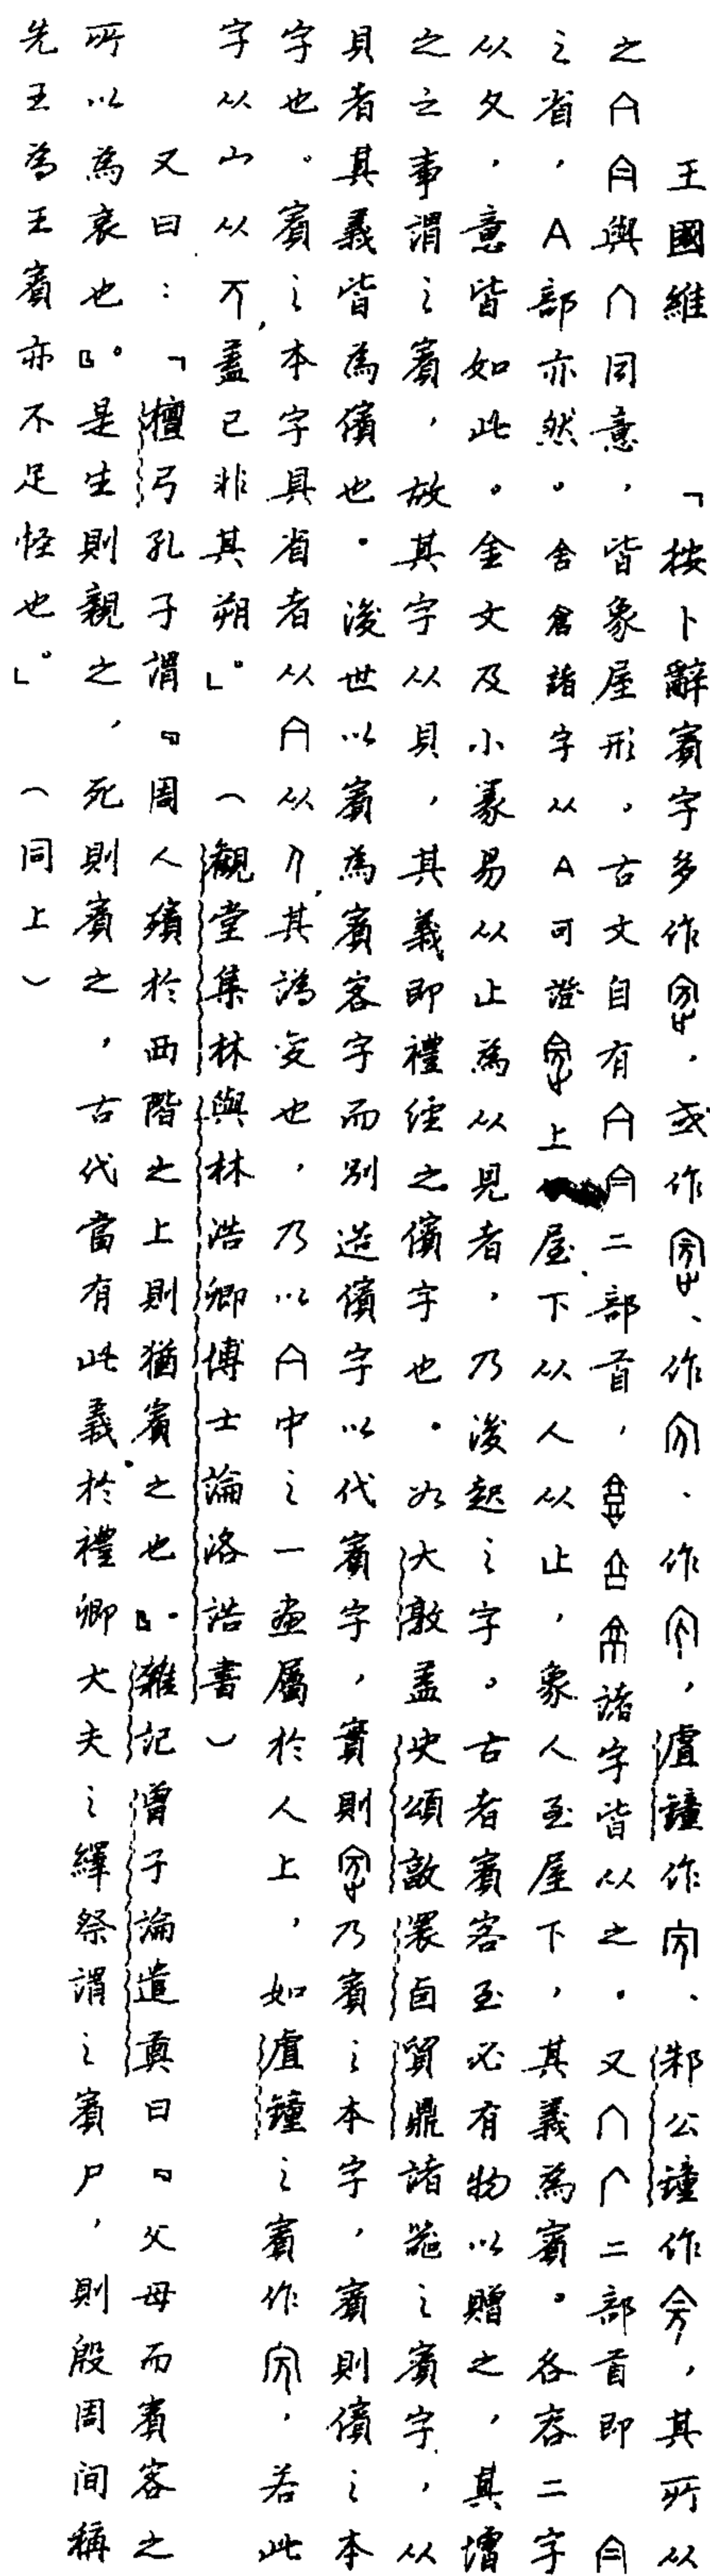 王國維　「按卜辭賓字多作，或作、作、作，虘鐘作、邾公鐘作，其所从
之與同意，皆象屋形。古文自有二部首，諸字皆从之。又二部首即
之省，A部亦然。舍倉諸字从A可證上屋下从人从止，象人至屋下，其義為賓。各客二字
从夊，意皆如此。金文及小篆易从止為从貝者，乃後起之字。古者賓客至必有物以贈之，其贈
之之事謂之賓，故其字从貝，其義即禮經之儐字也。如大敦盂史頌敦睘卣貿鼎諸器之賓字，从
貝者其義皆為儐也。後世以賓為賓客字而別造儐字以代賓字，實則乃賓之本字，賓則儐之本
字也。賓之本字其省者从从，其譌變也，乃以中之一畫屬於人上，如虘鐘之賓作，若此
字从宀从丏，蓋已非其朔」。（觀堂集林與林浩卿博士論洛誥書）
又曰：「檀弓孔子謂『周人殯於西階之上則猶賓之也』。雜記曾子論遣奠曰『父母而賓客之
所以為哀也』。是生則親之，死則賓之，古代當有此義。於禮卿大夫之繹祭謂之賓尸，則殷周间稱
先王為王賓亦不足怪也。」（同上）